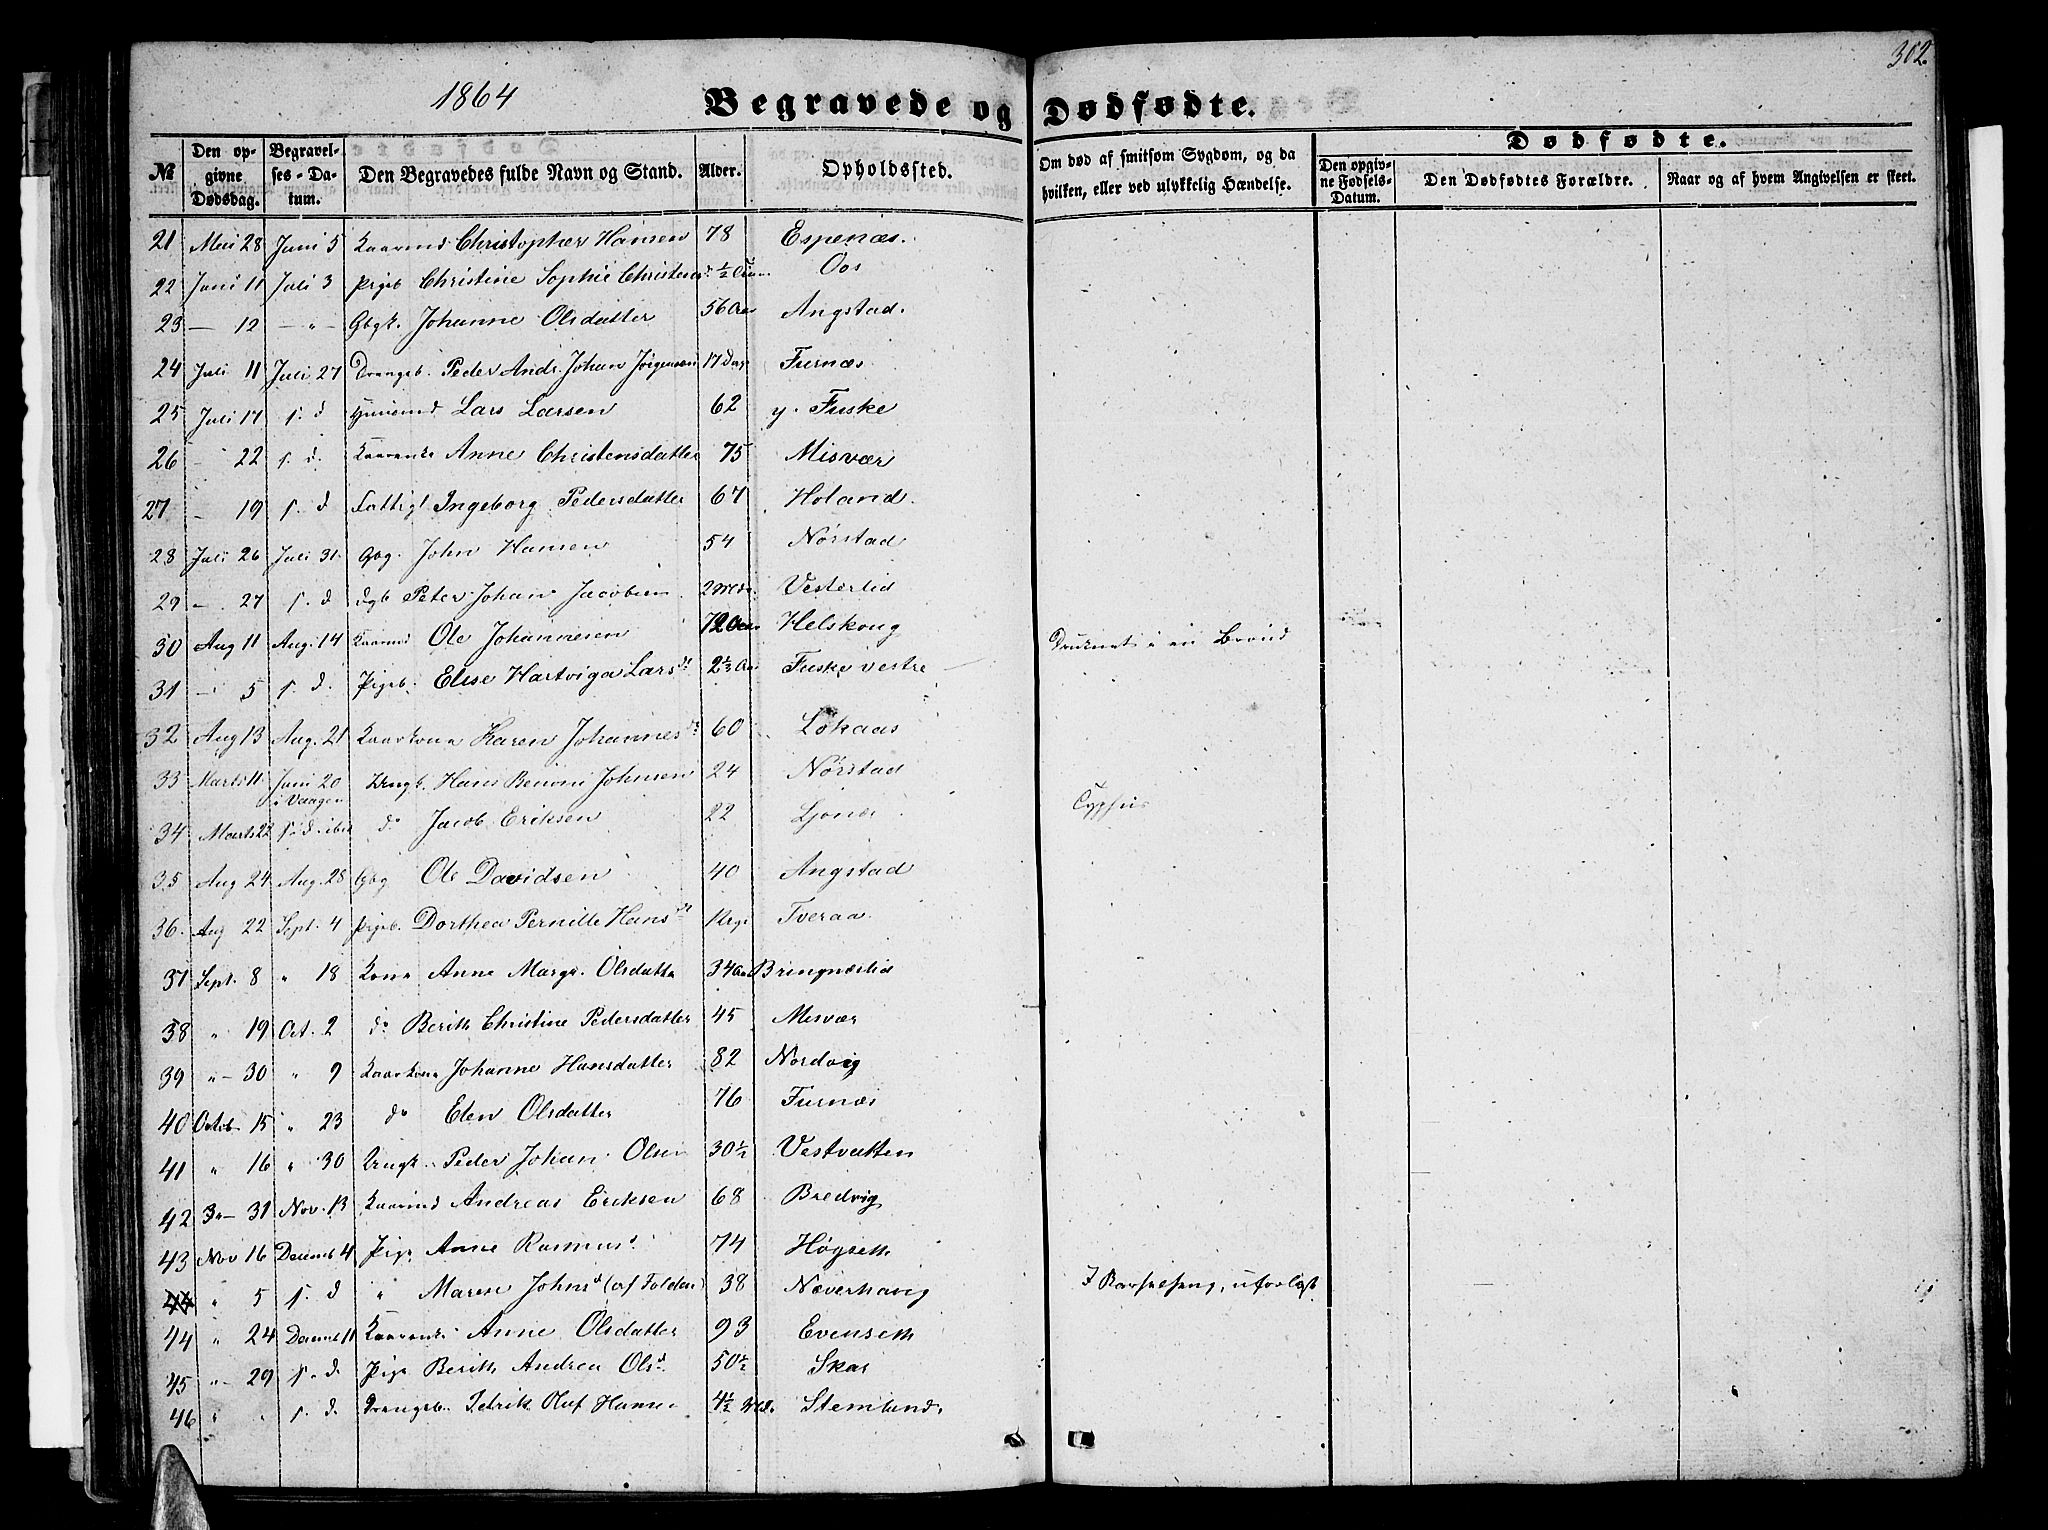 302.
1864
Begravede og Dødfødte.
Dødfødte.
№
Den opgivne Dødsdag.
Begravelses-Datum.
Den Begravedes fulde Navn og Stand.
Alder.
Opholdssted.
Om død af smitsom Sygdom, og da hvilken, eller ved ulykkelig Hændelse.
Den opgivne Fødsels-Datum.
Den Dødfødtes Forældre.
Naar og af hvem Angivelsen er skeet.
21 Mai 28 Juni 5 Kaarmd Christopher Hansen 78 Espenæs.
22 Juni 11 Juli 3 Pigeb Christine Sophie Christens d. ½ Aar Oos
23 — 12 — " — Gbgk. Johanne Olsdatter 56 Aar Angstad.
24 Juli 11 Juli 27 Drengeb. Peder Andr. Johan Jørgensen 17 Dag Furnæs
25 Juli 17 s. d Huusmd Lars Larsen 62 y. Fuske
26 - 22 s. d. Anne Christensdatter 75 Misvær
27 - 19 s. d Ingeborg Pedersdatter 67 Holand
28 Juli 26 Juli 31. Gbg. John Hansen 54 Nørstad
29 - 27 s. d dgb Peter Johan Jacobsen 2 Vesterlid
30 Aug 11 Aug. 14 Kaarmd Ole Johannesen 72 Aar Helskoug Druknet i en Brønd
31 - 5 s. d. Pigeb. Elise Hartviga Lars d. 2½ Aar Fuske vestre
32 Aug 13 Aug. 21 Kaarkona Karen Johannes d. 60 Løkaas
33 Marts 11 Juni 20 i Vaagen Ungk. Hans Benoni Johnsen 24 Nørstad
34 Marts 22 s. d. ibid do Jacob Eriksen 22 Ljønes Typhus
35 Aug 24 Aug. 28 Gbg Ole Davidsen 40 Angstad
36. Aug 22 Sept. 4 Pigeb. Dorthea Pernille Hans d. Tveraa.
37 Sept. 8 " 18 Kona Anne Margr. Olsdatte 34 Aar Bringneslid
38 " 19 Oct. 2 do Berith Christine Pedersdatter 45 Misvær
39 " — 30 " 9 Kaarkona Johanne Hansdatter 82 Nordvig
40 Octob 15 " 23 do Elen Olsdatter 76 Furnæs
41 " 16 " 30 Ungk. Peder Johan Olsen 30½ Vestvatten
42 31 Nov. 13 Kaarmd Andreas Eriksen 68 Bredvig
43 Nov 16 Decemb 4 Pige Anne Rasmus d. 74 Høgseth
44 " 5 s. d " Maren Johns d (af Folden) 38 Næverhaug I Barselseng, uforløst
44 " 24 Decemb 11 Anne Olsdatter 93 Evenseth
45 " 29 s. d Pige Berith Andrea Ols d. 50½ Skar
46 " " s. d. Drengeb. Fedrik Oluf Hansen 4½ Stemlund.